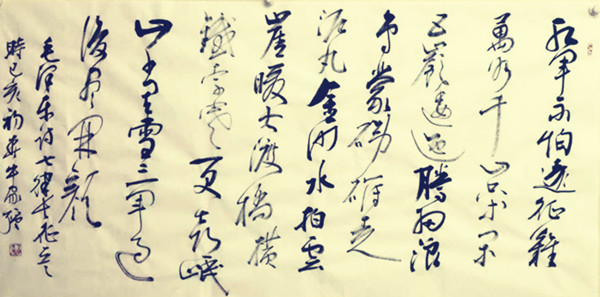 红军不怕远征难
萬水千山只等闲
五嶺逶迤腾细浪
乌蒙磅礴走
泥丸金沙水拍雲
崖暖大渡橋横
鐵索寒更喜岷
山千里雪三军过
後尽开颜
毛泽东诗七律长征
時己亥初春牛家